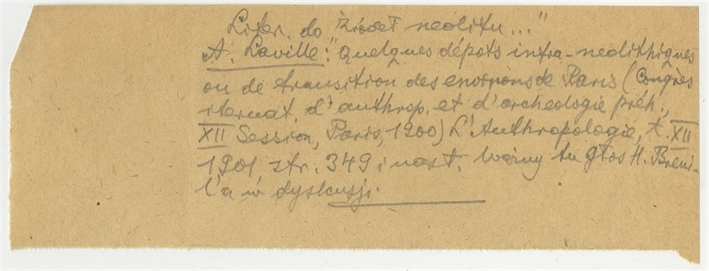 Liter. do "Źródeł neolitu..."
A. Laville: "Quelques dépots infra-neolithiques
ou de transition des environs de Paris (Congrès
iternat. d'anthrop. et d'archeologie préh.,
XII Session, Paris, 1900) L'Anthropologie, t. XII
1901 str. 349 i nast. Ważny tu głos H. Breui-
l'a w dyskusji.